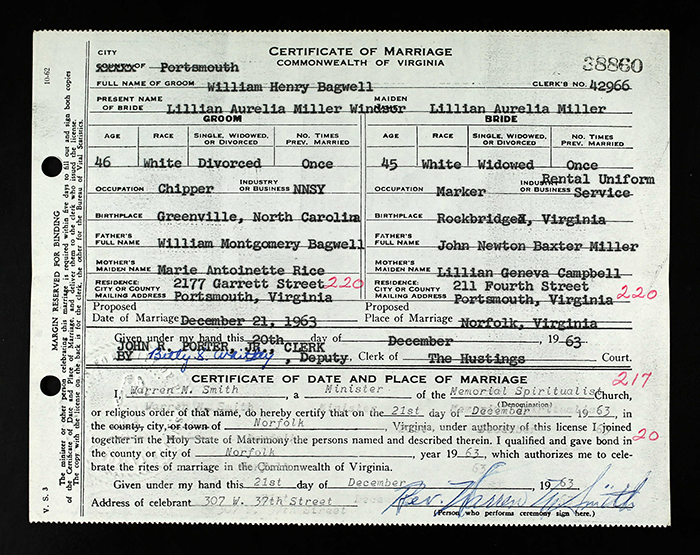 CITY
COUNTY OF Portsmouth
CERTIFICATE OF MARRIAGE
COMMONWEALTH OF VIRGINIA
38860
FULL NAME OF GROOM William Henry Bagwell CLERK'S NO. 42966
PRESENT NAME OF BRIDE Lillian Aurelia Miller Windsor MAIDEN NAME Lillian Aurelia Miller
GROOM BRIDE
AGE RACE SINGLE, WIDOWED, OR DIVORCED NO. TIMES PREV. MARRIED AGE RACE SINGLE, WIDOWED, OR DIVORCED NO. TIMES PREV. MARRIED
46 White Divorced Once 45 White Widowed Once
OCCUPATION Chipper INDUSTRY OR BUSINESS NNSY OCCUPATION Marker INDUSTRY OR BUSINESS Rental Uniform Service
BIRTHPLACE Greenville, North Carolina BIRTHPLACE Rockbridge, Virginia
FATHER'S FULL NAME William Montgomery Bagwell FATHER'S FULL NAME John Newton Baxter Miller
MOTHER'S MAIDEN NAME Marie Antoinette Rice MOTHER'S MAIDEN NAME Lillian Geneva Campbell
RESIDENCE: CITY OR COUNTY MAILING ADDRESS 2177 Garrett Street Portsmouth, Virginia 220 RESIDENCE: CITY OR COUNTY MAILING ADDRESS 211 Fourth Street Portsmouth, Virginia 220
Proposed Date of Marriage December 21, 1963 Proposed Place of Marriage Norfolk, Virginia
Given under my hand this 20th day of December 1963
JOHN R. PORTER, JR., CLERK
BY , Deputy. Clerk of The Hustings Court.
CERTIFICATE OF DATE AND PLACE OF MARRIAGE 217
I, Warren M. Smith, a Minister of the Memorial Spiritualist Church,
(Denomination)
or religious order of that name, do hereby certify that on the 21st day of December 1963,
in the county, city, or town of Norfolk, Virginia, under authority of this license I joined
together in the Holy State of Matrimony the persons named and described therein. I qualified and gave bond in 20
the county or city of Norfolk, year 1963, which authorizes me to cele-
brate the rites of marriage in the Commonwealth of Virginia.
Given under my hand this 21st day of December, 1963
Address of celebrant 307 W. 37th Street Rev. Warren M. Smith
(Person who performs ceremony sign here.)
10-62
V. S. 3
MARGIN RESERVED FOR BINDING
The minister or other person celebrating this marriage is required within five days to fill out and sign both copies
of the Certificate of Date and Place of Marriage, and deliver them to the clerk who issued the license.
The copy with the license on the back is for the clerk, the other for the Bureau of Vital Statistics.